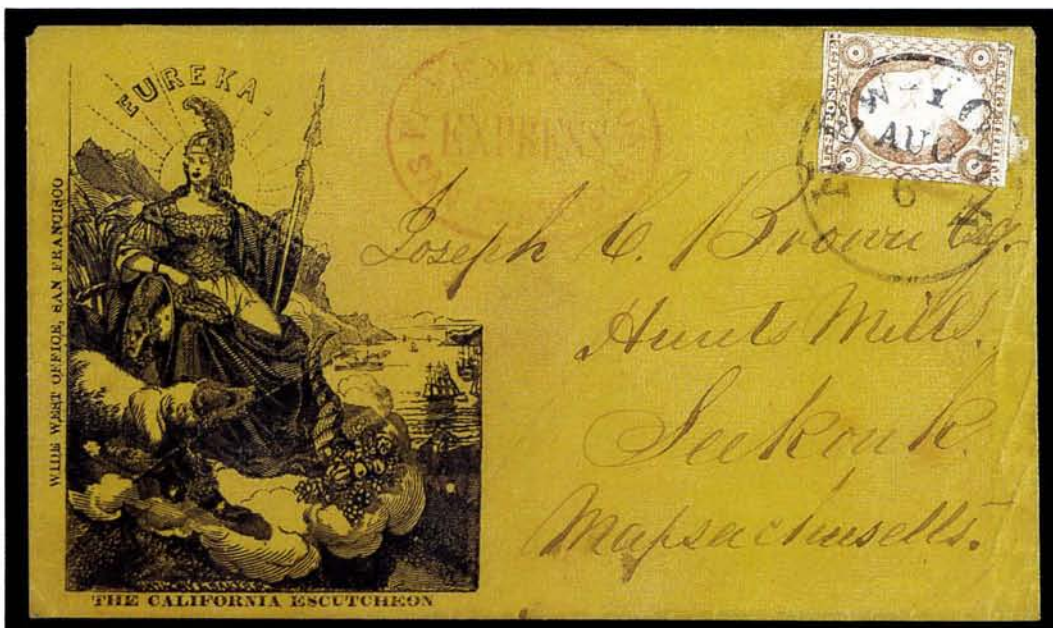 EUREKA.
WIDE WEST OFFICE, SAN FRANCISCO
THE CALIFORNIA ESCUTCHEON
EXPRESS
U.S. POSTAGE
AUG
6
Joseph C. Brown Esq.
Hunts Mills.
Seekonk.
Massachusetts.